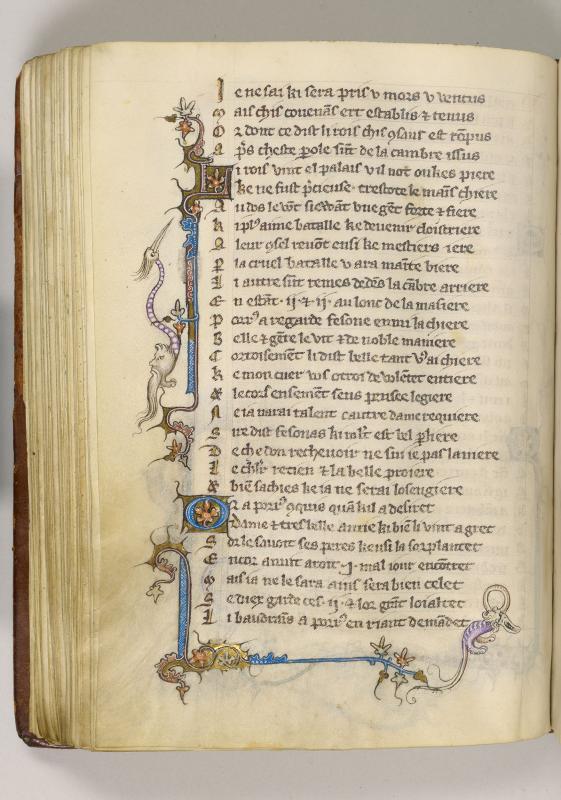 I e ne sai ki sera pris v mors v ventus
M ais chis couenās ert establis ⁊ tenus
O r dont ce dist li rois chis ꝯsaus est rōpus
A p̄s cheste pole sūt de la cambre issus
L i rois vint el palais v il not oukes piere
ke ne fust p̄cieuse . trestote le mains chiere
A
K i plꝰ aime batalle ke deuenir cloistriere
A leur ꝯsel reuōt ensi ke mestiers iere
P la cruel batalle v ara mainte biere
L i autre sūt remes dedēs la cābre arriere
E n estāt . ij . ⁊ ij . au lonc de la masiere
P orrꝰ a regarde fesone enmi la chiere
B elle ⁊ gēte le vit ⁊ de noble maniere
C ortoisemēt li dist belle tant vꝰ ai chiere
K e mon cuer vos otroi de volēter entiere
& le cors ensemēt sens prusee legiere
A e ia narai talent cautre dame requiere
S ire dist fesonas ki mlt est bel pliere
D e che don rechevoir ne sui ie pas laniere
L e chl̄r retien ⁊ la belle proiere
& biē sachies ke ia ne serai losengiere
O r a porrꝰ ꝯquis quā kil a desiret
Dame ⁊ tres belle amie ki biē li vint a gret
S or le sauoit ses peres kensi la sorplantet
E ncor anuit aroit . I . mal iour encōtret
M ais ia ne le sara ains sera bien celet
S e diex garde ces . ij . ⁊ lor grāt loialtet
L i baudrains a porrꝰ en riant demādet